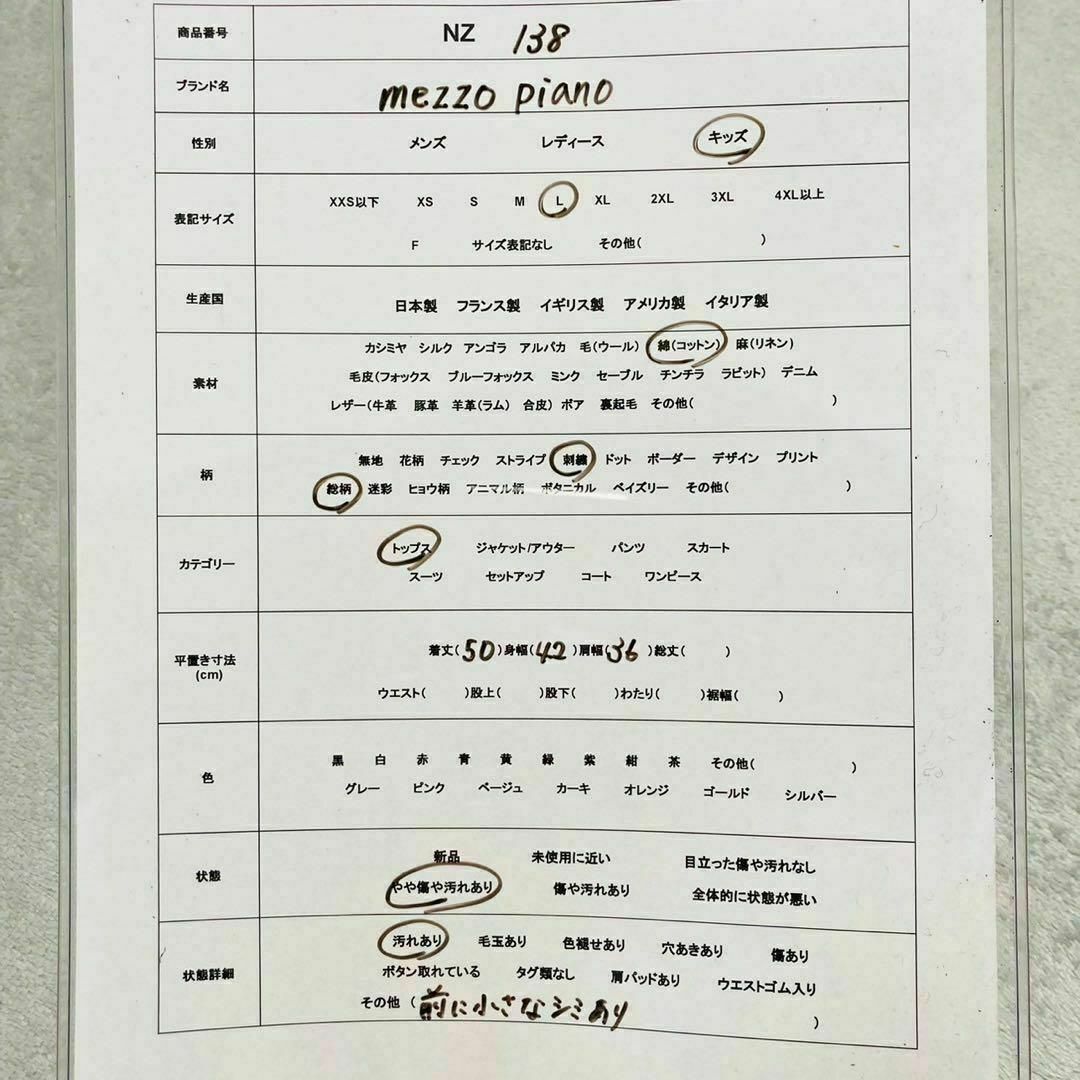 商品番号 NZ 138
ブランド名 mezzo piano
性別 メンズ レディース キッズ
表記サイズ XXS以下 XS S M L XL 2XL 3XL 4XL以上
F サイズ表記なし その他( )
生産国 日本製 フランス製 イギリス製 アメリカ製 イタリア製
素材 カシミヤ シルク アンゴラ アルパカ 毛(ウール) 綿(コットン) 麻(リネン)
毛皮(フォックス ブルーフォックス ミンク セーブル チンチラ ラビット) デニム
レザー(牛革 豚革 羊革(ラム) 合皮) ボア 裏起毛 その他( )
柄 無地 花柄 チェック ストライプ 刺繍 ドット ボーダー デザイン プリント
総柄 迷彩 ヒョウ柄 アニマル柄 ボタニカル ペイズリー その他( )
カテゴリー トップス ジャケット/アウター パンツ スカート
スーツ セットアップ コート ワンピース
平置き寸法 (cm) 着丈(50)身幅(42)肩幅(36)総丈( )
ウエスト( )股上( )股下( )わたり( )裾幅( )
色 黒 白 赤 青 黄 緑 紫 紺 茶 その他( )
グレー ピンク ベージュ カーキ オレンジ ゴールド シルバー
状態 新品 未使用に近い 目立った傷や汚れなし
やや傷や汚れあり 傷や汚れあり 全体的に状態が悪い
状態詳細 汚れあり 毛玉あり 色褪せあり 穴あきあり 傷あり
ボタン取れている タグ類なし 肩パッドあり ウエストゴム入り
その他 (前に小さなシミあり )